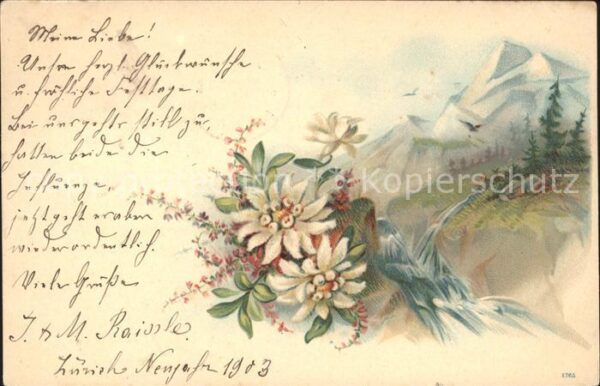 Meine Liebe!
Unsre herzl. Glückwünsche
u. fröhliche Festtage.
Bei uns gehts still zu,
hatten beide die
Influenza,
jetzt geht es aber
wieder ordentlich.
Viele Grüße
J. & M. Raissle.
Zürich Neujahr 1903
Kopierschutz
1765